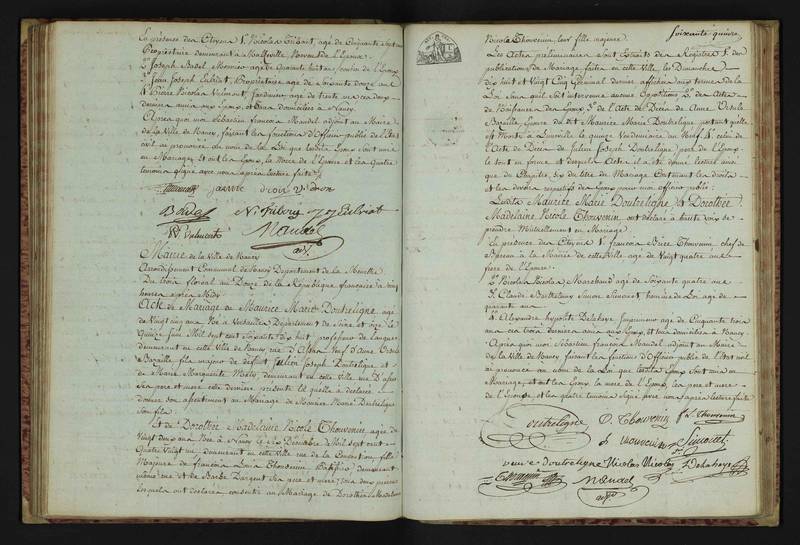 En présence des Citoyens 1. Nicolas Thibaut, agé de Cinquante sept ans
Propriétaire demeurant à Malleville, Neveu de l'Epoux
2. Joseph Badel, Menuisier agé de quarante huit ans, Cousin de l'Epoux
3. Jean Joseph Lalviat, Propriétaire agé de Soixante douze ans
4. Pierre Nicolas Valencert Jardinier agé de trente six ans deux
derniers amis aux Epoux, et tous domiciliés à Nancy
Après quoi moi Sébastien françois Mandel adjoint au Maire
de la Ville de Nancy, faisant les fonctions d'Officier public de l'Etat
civil ai prononcé au nom de la Loi que lesdits Epoux sont unis
en Mariage, et ont les Epoux, la Mere de l'Epouse et les quatre
temoins signé avec nous après lecture faite
Mandel
adjt
Mairie de la Ville de Nancy
Arrondissement Communal de Nancy Département de la Meurthe
Du trois floréal an Douze de la République française à cinq
heures après Midy
Acte de Mariage de Maurice Marie Doutreligne agé
de Vingt cinq ans Né à Versailles Département de Seine et oise le
Quinze Juin Mil sept cent soixante dix huit, professeur de Langues
demeurant en cette Ville de Nancy rue d'Alsace, Veuf d'Anne Ursule
Bazaille, fils majeur de défunt Julien Joseph Doutreligne et
de Marie Marguerite Macy, demeurant en cette Ville,
ses pere et mere cette derniere présente la quelle a déclaré
donner son consentement au Mariage de Maurice Marie Doutreligne
Son fils
Et de Dorothée Madelaine Nicole Thouvenin, agée de
Vingt deux ans Née à Nancy le six Décembre de Mil sept cent
Quatre Vingt un demeurant en cette Ville rue de la Convention, fille
Majeure de françois Louis Thouvenin demeurant
même rue et de Barbe Dargent ses pere et mere tous deux présens
lesquels ont déclaré consentir au Mariage de Dorothée Madelaine
Soixante quinze
Nicole Thouvenin, leur fille majeure
Les Actes préliminaires sont Extraits des Registres 1. des
publications de Mariage faites en cette Ville, les Dimanches
dix huit et Vingt cinq Germinal dernier affichées aux termes de la
Loi sans qu'il soit intervenu aucune Opposition 2. des Actes
de Naissance des Epoux 3. de l'Acte de Décès de Anne Ursule
Bazaille, Epouse du dit Maurice Marie Doutreligne portant qu'elle
est Morte à Lunéville le quinze Vendemiaire an Neuf 4. celui de
l'Acte de Décès de Julien Joseph Doutreligne pere de l'Epoux
le tout en forme et desquels Actes il a été donné lecture ainsi
que du Chapitre six du titre du Mariage Contenant les droits
et les devoirs respectifs des Epoux par moi Officier public
Lesdits Maurice Marie Doutreligne & Dorothée
Madelaine Nicole Thouvenin, ont déclaré à haute voix se
prendre Mutuellement en Mariage
En présence des Citoyens 1. françois Thouvenin, chef de
Bureau à la Mairie de cette Ville agé de Vingt quatre ans
frere de l'Epouse
2. Nicolas Nicolas Marechaud agé de Soixante quatre ans
3. Claude Barthelemy Simon Sinsoist homme de Loi agé de
quarante ans
4. Alexandre hypolite Delahaye Imprimeur agé de Cinquante trois
ans ces trois derniers amis aux Epoux, et tous domiciliés à Nancy
Après quoi moi Sébastien françois Mandel adjoint au Maire
de la Ville de Nancy faisant les fonctions d'Officier public de l'Etat civil
ai prononcé au nom de la Loi que lesdits Epoux sont unis en
Mariage, et ont les Epoux, la mere de l'Epoux, les pere et mere
de l'Epouse et les quatre temoins signé avec nous après lecture faite
Doutreligne D. Thouvenin f. L. Thouvenin
veuve Doutreligne Nicolas Nicolas Delahaye
Mandel
adjt